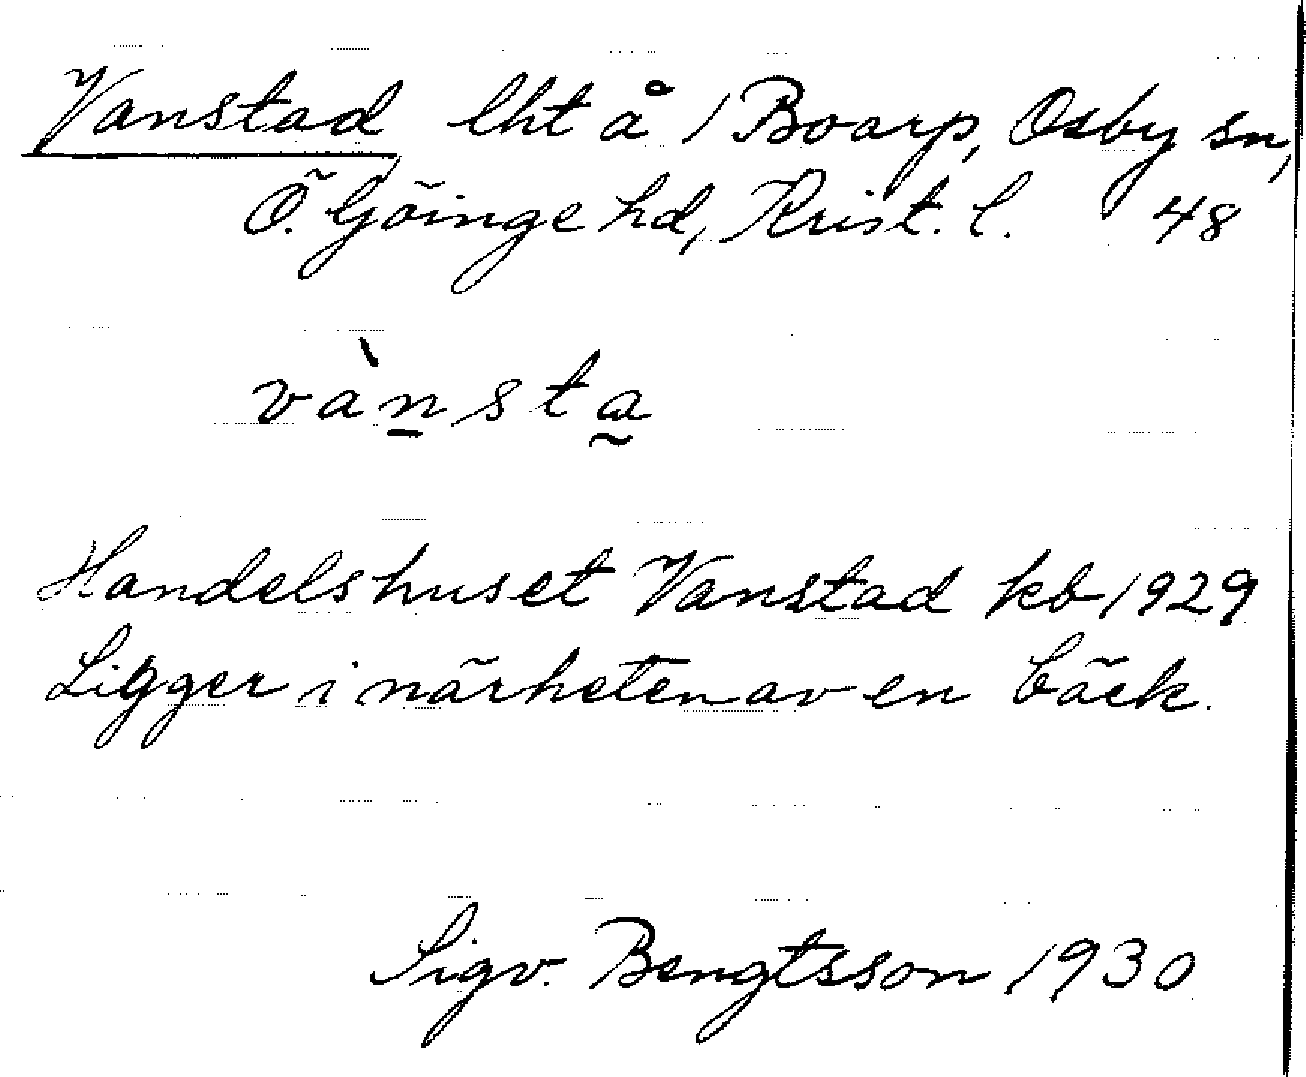 Vanstad lht å 1 Boarp, Osby sn,
Ö. Göinge hd, Krist. l. 48
vànsta
Handelshuset Vanstad kb 1929
Ligger i närheten av en bäck.
Sigv. Bengtsson 1930